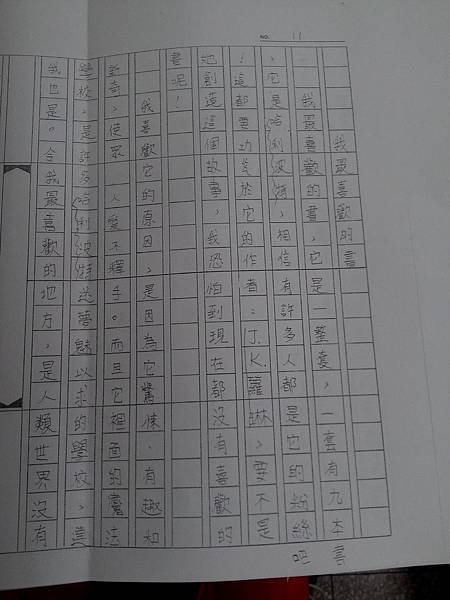 NO. 11
我最喜歡的書
我最喜歡的書，它是一整套，一套有九本書
，它是哈利波特，相信有許多人都是它的粉絲吧
！這都要功於它的作者：J.K.蘿琳，要不是
她創造這個故事，我恐怕到現在都沒有喜歡的
書呢！
我喜歡它的原因，是因為它驚悚、有趣和
新奇，使眾人愛不釋手。而且它裡面的魔法
學校，是許多哈利波特迷夢寐以求的學校，
我也是。令我最喜歡的地方，是人類世界沒有